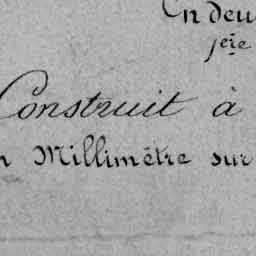 En deu
1ere
Construit à
n Millimètre sur